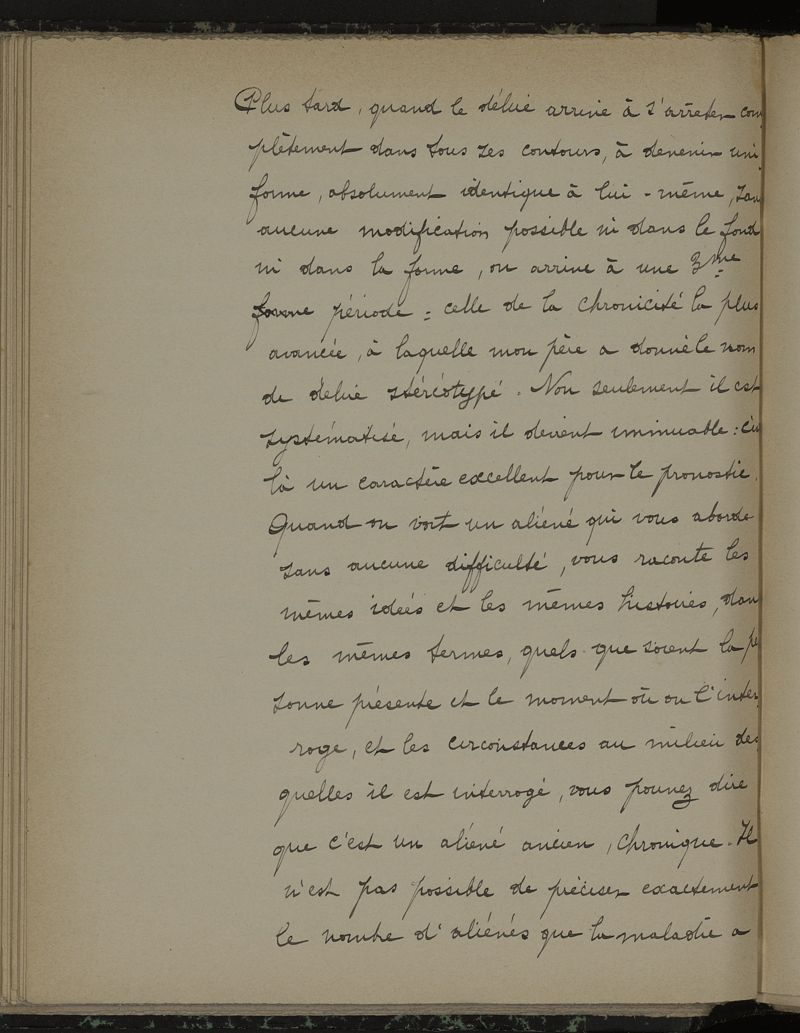 Plus tard, quand le délire arrive à s'arrêter com
plètement dans tous ses contours, à devenir uni
forme, absolument identique à lui-même, san
aucune modification possible ni dans le fond
ni dans la forme, on arrive à une 3me
forme période : celle de la chronicité la plus
avancée, à laquelle mon père a donné le nom
de délire stéréotypé. Non seulement il est
systématisé, mais il devient immuable : c'es
là un caractère excellent pour le pronostic.
Quand on voit un aliéné qui vous aborde
sans aucune difficulté, vous raconte les
mêmes idées et les mêmes histoires, dan
les mêmes termes, quels que soient la pe
sonne présente et le moment où on l'inter
roge, et les circonstances au milieu des
quelles il est interrogé, vous pouvez dire
que c'est un aliéné ancien, chronique. Il
n'est pas possible de préciser exactement
le nombre d'aliénés que la maladie a